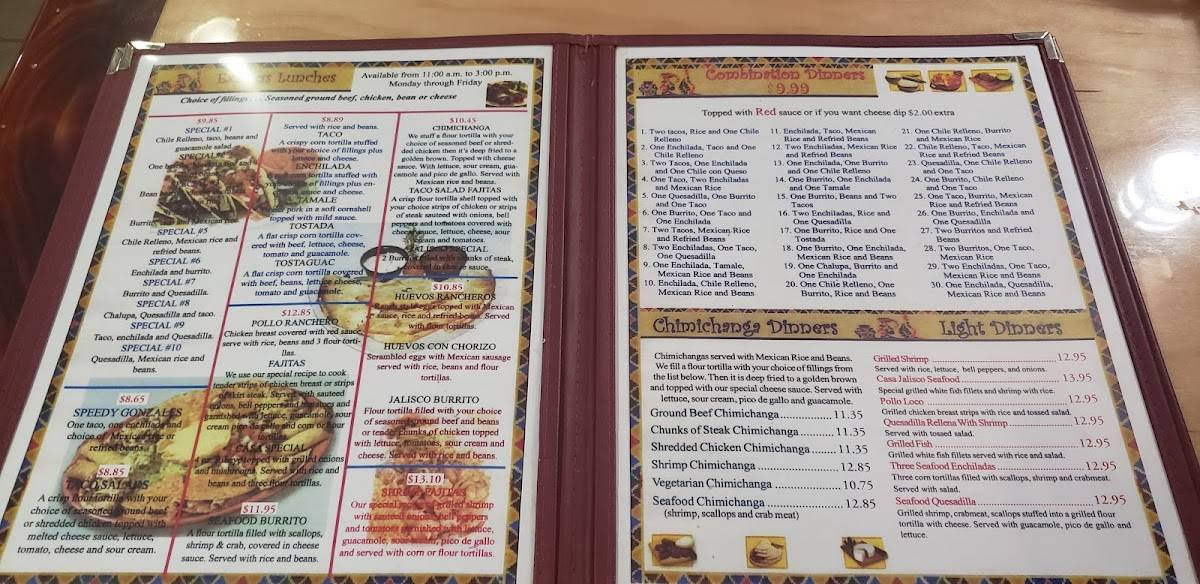 Lunches
Available from 11:00 a.m. to 3:00 p.m.
Monday through Friday
Choice of fillings Seasoned ground beef, chicken, bean or cheese
$9.85
SPECIAL #1
Chile Relleno, taco, beans and
guacamole salad.
SPECIAL #5
Chile Relleno, Mexican rice and
refried beans.
SPECIAL #6
Enchilada and burrito.
SPECIAL #7
Burrito and Quesadilla.
SPECIAL #8
Chalupa, Quesadilla and taco.
SPECIAL #9
Taco, enchilada and Quesadilla.
SPECIAL #10
Quesadilla, Mexican rice and
beans.
$8.65
SPEEDY GONZALES
One taco, one enchilada and
choice of Mexican rice or
refried beans.
$8.85
TACO SALADS
A crisp flour tortilla with your
choice of seasoned ground beef
or shredded chicken topped with
melted cheese sauce, lettuce,
tomato, cheese and sour cream.
$8.89
Served with rice and beans.
TACO
A crispy corn tortilla stuffed
with your choice of fillings plus
lettuce and cheese.
ENCHILADA
corn tortilla stuffed with
of fillings plus en-
sauce and cheese.
TAMALE
pork in a soft cornshell
topped with mild sauce.
TOSTADA
A flat crisp corn tortilla cov-
ered with beef, lettuce, cheese,
tomato and guacamole.
TOSTAGUAC
A flat crisp corn tortilla covered
with beef, beans, lettuce, cheese,
tomato and guacamole.
$12.85
POLLO RANCHERO
Chicken breast covered with red sauce,
serve with rice, beans and 3 flour torti-
llas.
FAJITAS
We use our special recipe to cook
tender strips of chicken breast or strips
of skirt steak. Served with sauteed
onions, bell peppers and tomatoes and
garnished with lettuce, guacamole, sour
cream pico de gallo and corn or flour
tortillas.
CASA SPECIAL
topped with grilled onions
and mushrooms. Served with rice and
beans and three flour tortillas.
$11.95
SEAFOOD BURRITO
A flour tortilla filled with scallops,
shrimp & crab, covered in cheese
sauce. Served with rice and beans.
$10.45
CHIMICHANGA
We stuff a flour tortilla with your
choice of seasoned beef or shred-
ded chicken then it's deep fried to a
golden brown. Topped with cheese
sauce. With lettuce, sour cream, gua-
camole and pico de gallo. Served with
Mexican rice and beans.
TACO SALAD FAJITAS
A crisp flour tortilla shell topped with
your choice strips of chicken or strips
of steak sauteed with onions, bell
peppers and tomatoes covered with
cheese sauce, lettuce, cheese, sour
cream and tomatoes.
SPECIAL
2 Burritos filled with chunks of steak,
covered in cheese sauce.
$10.85
HUEVOS RANCHEROS
eggs topped with Mexican
sauce, rice and refried beans. Served
with flour tortillas.
HUEVOS CON CHORIZO
Scrambled eggs with Mexican sausage
served with rice, beans and flour
tortillas.
JALISCO BURRITO
Flour tortilla filled with your choice
of seasoned ground beef and beans
or tender chunks of chicken topped
with lettuce, tomatoes, sour cream and
cheese. Served with rice and beans.
$13.10
SHRIMP FAJITAS
Our special recipe of grilled shrimp
with sauteed onions, bell peppers
and tomatoes garnished with lettuce,
guacamole, sour cream, pico de gallo
and served with corn or flour tortillas.
Combination Dinners
$9.99
Topped with Red sauce or if you want cheese dip $2.00 extra
1. Two tacos, Rice and One Chile
Relleno
2. One Enchilada, Taco and One
Chile Relleno
3. Two Tacos, One Enchilada
and One Chile con Queso
4. One Taco, Two Enchiladas
and Mexican Rice
5. One Quesadilla, One Burrito
and One Taco
6. One Burrito, One Taco and
One Enchilada
7. Two Tacos, Mexican Rice
and Refried Beans
8. Two Enchiladas, One Taco,
One Quesadilla
9. One Enchilada, Tamale,
Mexican Rice and Beans
10. Enchilada, Chile Relleno,
Mexican Rice and Beans
11. Enchilada, Taco, Mexican
Rice and Refried Beans
12. Two Enchiladas, Mexican Rice
and Refried Beans
13. One Enchilada, One Burrito
and One Chile Relleno
14. One Burrito, One Enchilada
and One Tamale
15. One Burrito, Beans and Two
Tacos
16. Two Enchiladas, Rice and
One Quesadilla
17. One Burrito, Rice and One
Tostada
18. One Burrito, One Enchilada,
Mexican Rice and Beans
19. One Chalupa, Burrito and
One Enchilada
20. One Chile Relleno, One
Burrito, Rice and Beans
21. One Chile Relleno, Burrito
and Mexican Rice
22. Chile Relleno, Taco, Mexican
Rice and Refried Beans
23. Quesadilla, One Chile Relleno
and One Taco
24. One Burrito, Chile Relleno
and One Taco
25. One Taco, Burrito, Mexican
Rice and Refried Beans
26. One Burrito, Enchilada and
One Quesadilla
27. Two Burritos and Refried
Beans
28. Two Burritos, One Taco,
Mexican Rice
29. Two Enchiladas, One Taco,
Mexican Rice and Beans
30. One Enchilada, Quesadilla,
Mexican Rice and Beans
Chimichanga Dinners
Chimichangas served with Mexican Rice and Beans.
We fill a flour tortilla with your choice of fillings from
the list below. Then it is deep fried to a golden brown
and topped with our special cheese sauce. Served with
lettuce, sour cream, pico de gallo and guacamole.
Ground Beef Chimichanga 11.35
Chunks of Steak Chimichanga 11.35
Shredded Chicken Chimichanga 11.35
Shrimp Chimichanga 12.85
Vegetarian Chimichanga 10.75
Seafood Chimichanga 12.85
(shrimp, scallops and crab meat)
Light Dinners
Grilled Shrimp 12.95
Served with rice, lettuce, bell peppers, and onions.
Casa Jalisco Seafood 13.95
Special grilled white fish fillets and shrimp with rice.
Pollo Loco 12.95
Grilled chicken breast strips with rice and tossed salad.
Quesadilla Rellena With Shrimp 12.95
Served with tossed salad.
Grilled Fish 12.95
Grilled white fish fillets served with rice and salad.
Three Seafood Enchiladas 12.95
Three corn tortillas filled with scallops, shrimp and crabmeat.
Served with salad.
Seafood Quesadilla 12.95
Grilled shrimp, crabmeat, scallops stuffed into a grilled flour
tortilla with cheese. Served with guacamole, pico de gallo and
lettuce.